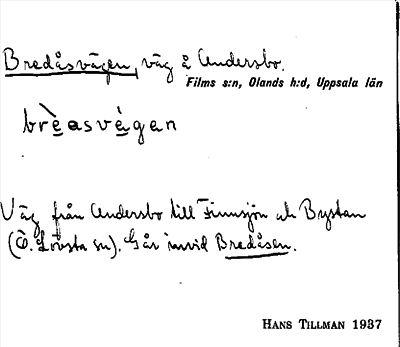 Bredåsvägen, väg å Andersbo.
Films s:n, Olands h:d, Uppsala län
brèasvägen
Väg från Andersbo till Finnsjön och Bystan
(Ö. Lövsta sn). Går invid Bredåsen.
HANS TILLMAN 1937